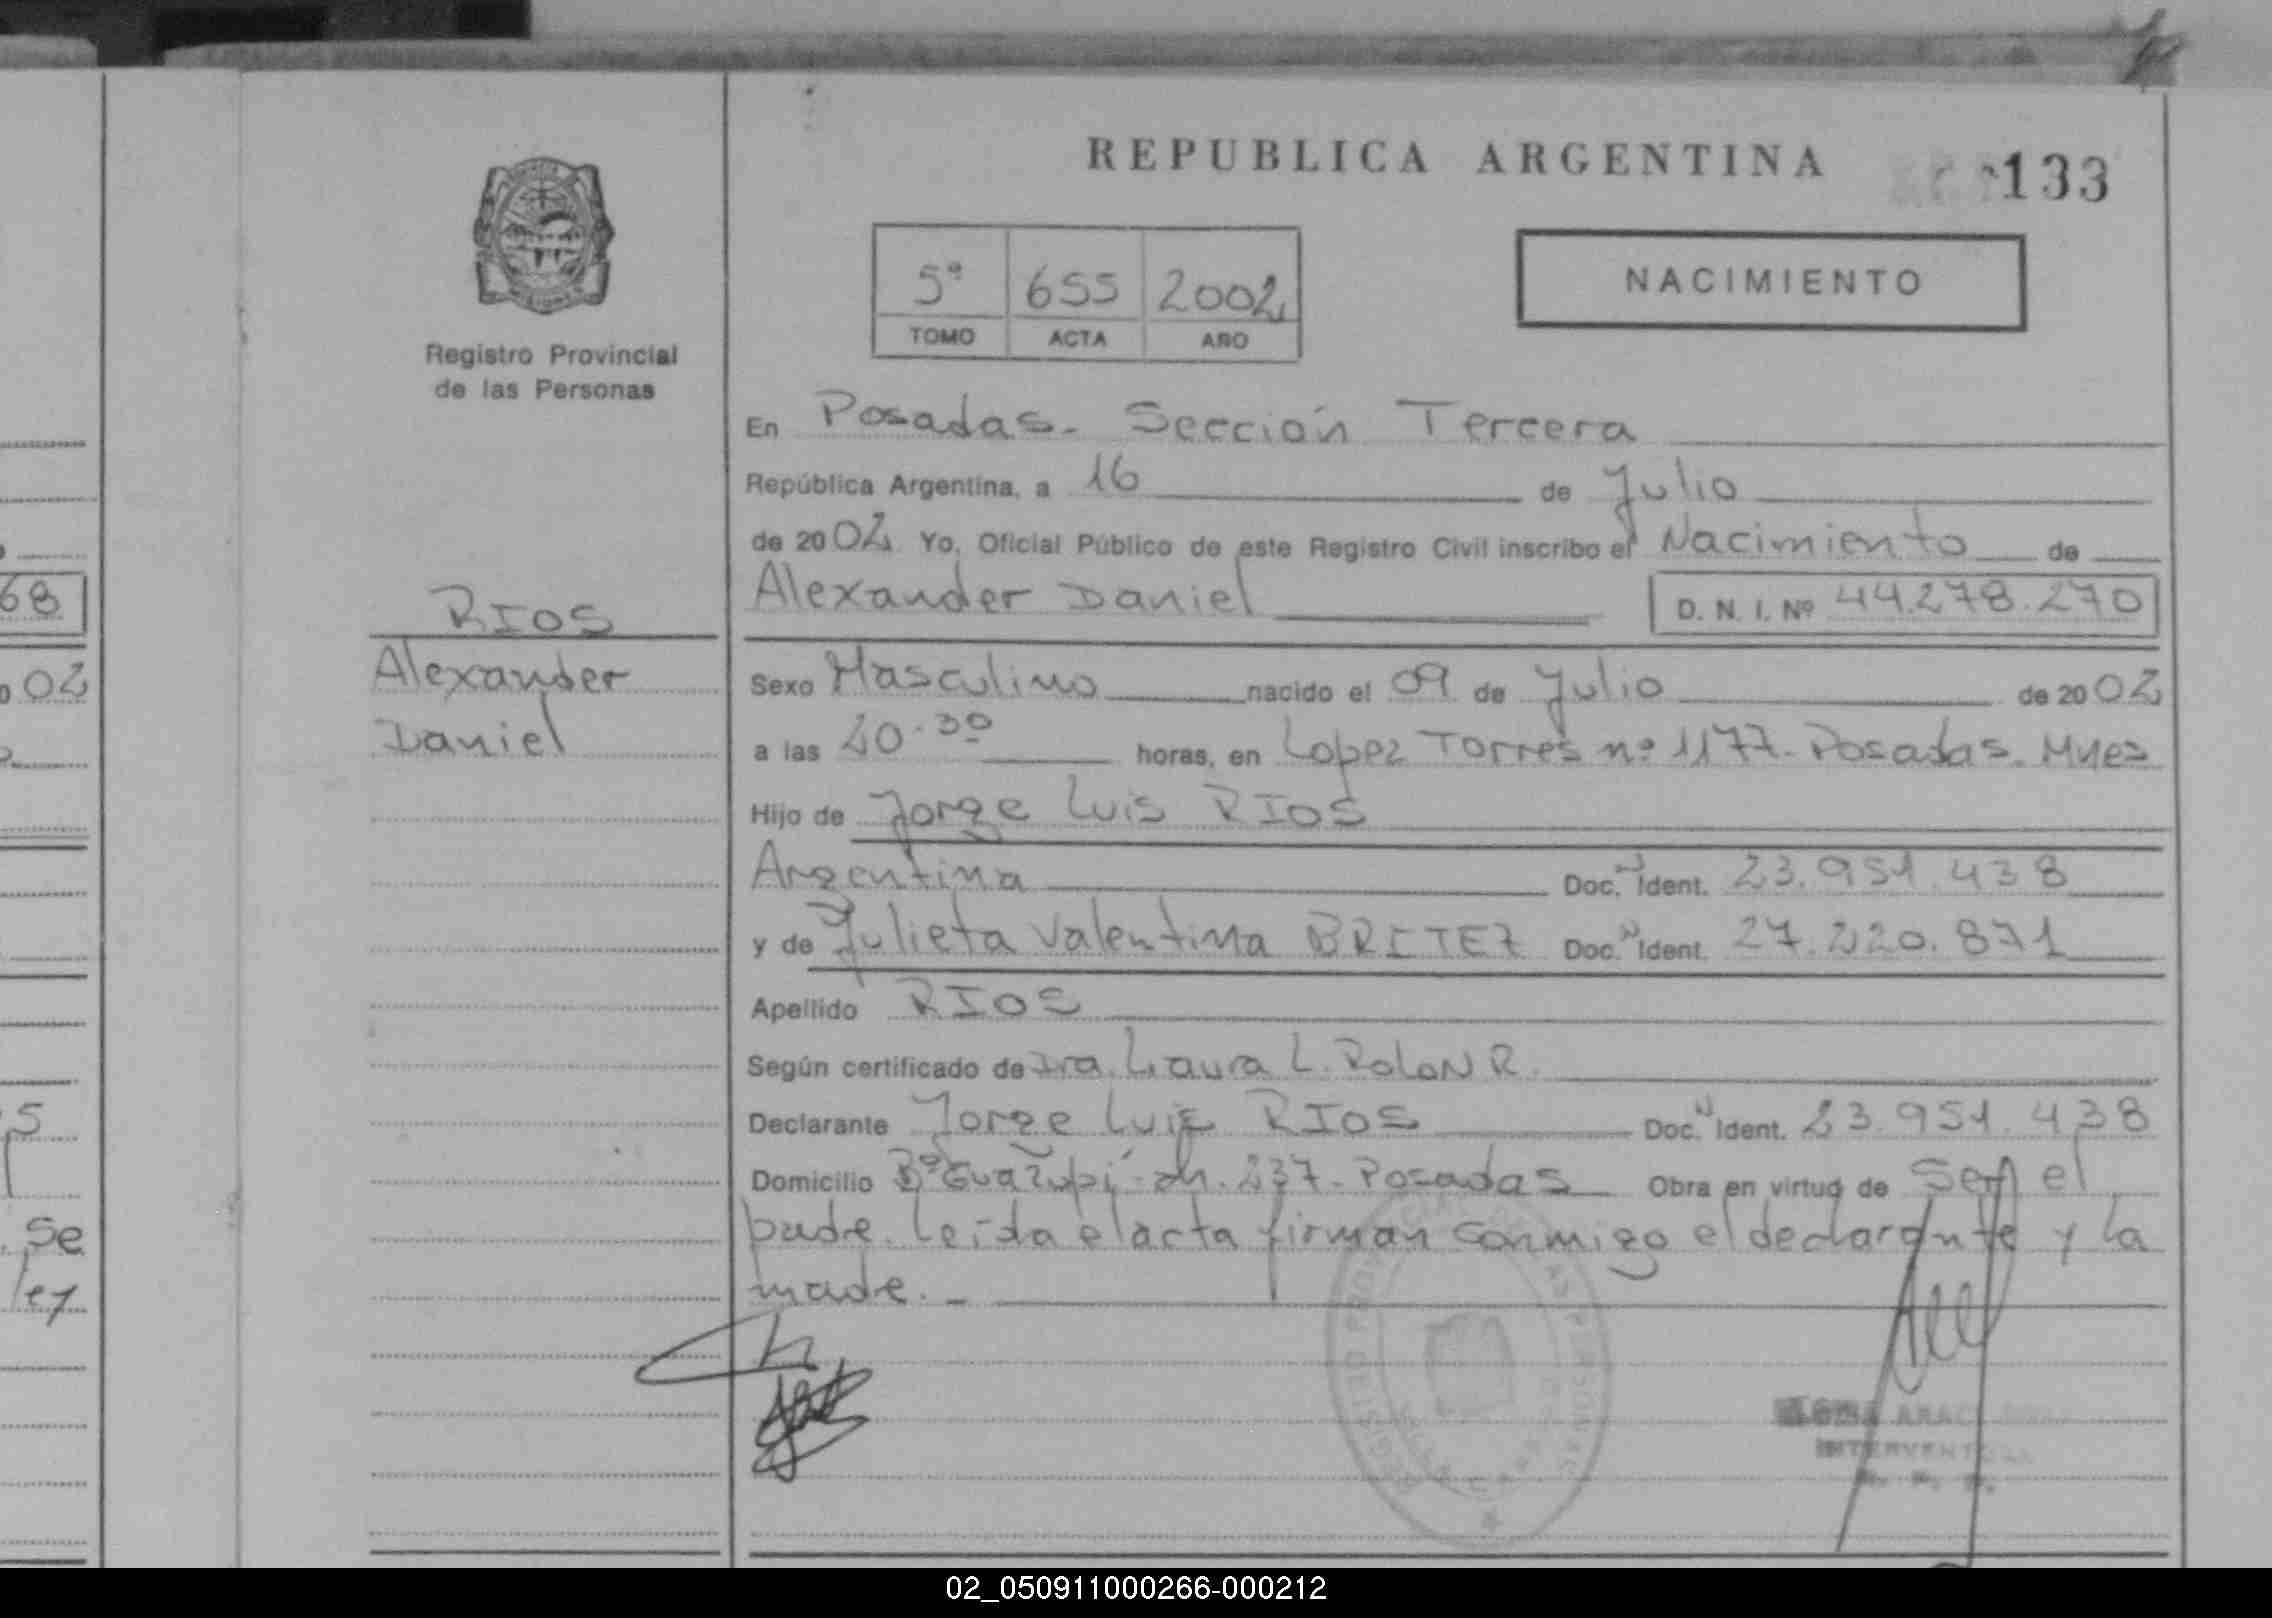 REPUBLICA ARGENTINA
133
5ª 655 2002
TOMO ACTA AÑO
NACIMIENTO
Registro Provincial
de las Personas
En Posadas - Sección Tercera
República Argentina, a 16 de Julio
de 2002 Yo, Oficial Público de este Registro Civil inscribo el Nacimiento de
Alexander Daniel D. N. I. Nº 44.278.270
RIOS
Alexander
Daniel
Sexo Masculino nacido el 09 de Julio de 2002
a las 20.30 horas, en Lopez Torres nº 1177 - Posadas. Mnes
Hijo de Jorge Luis RIOS
Argentina Doc. Ident. 23.951.438
y de Julieta Valentina BRITEZ Doc. Ident. 27.220.871
Apellido RIOS
Según certificado de Dra. Laura L. Rolon R.
Declarante Jorge Luis RIOS Doc. Ident. 23.951.438
Domicilio Bº Guazupí - ch. 237 - Posadas Obra en virtud de Ser el
padre. Leída el acta firman conmigo el declarante y la
madre. -
REGISTRO PROVINCIAL DE LAS PERSONAS
INTERVENTORA
68
02
Se
ley
02_050911000266-000212